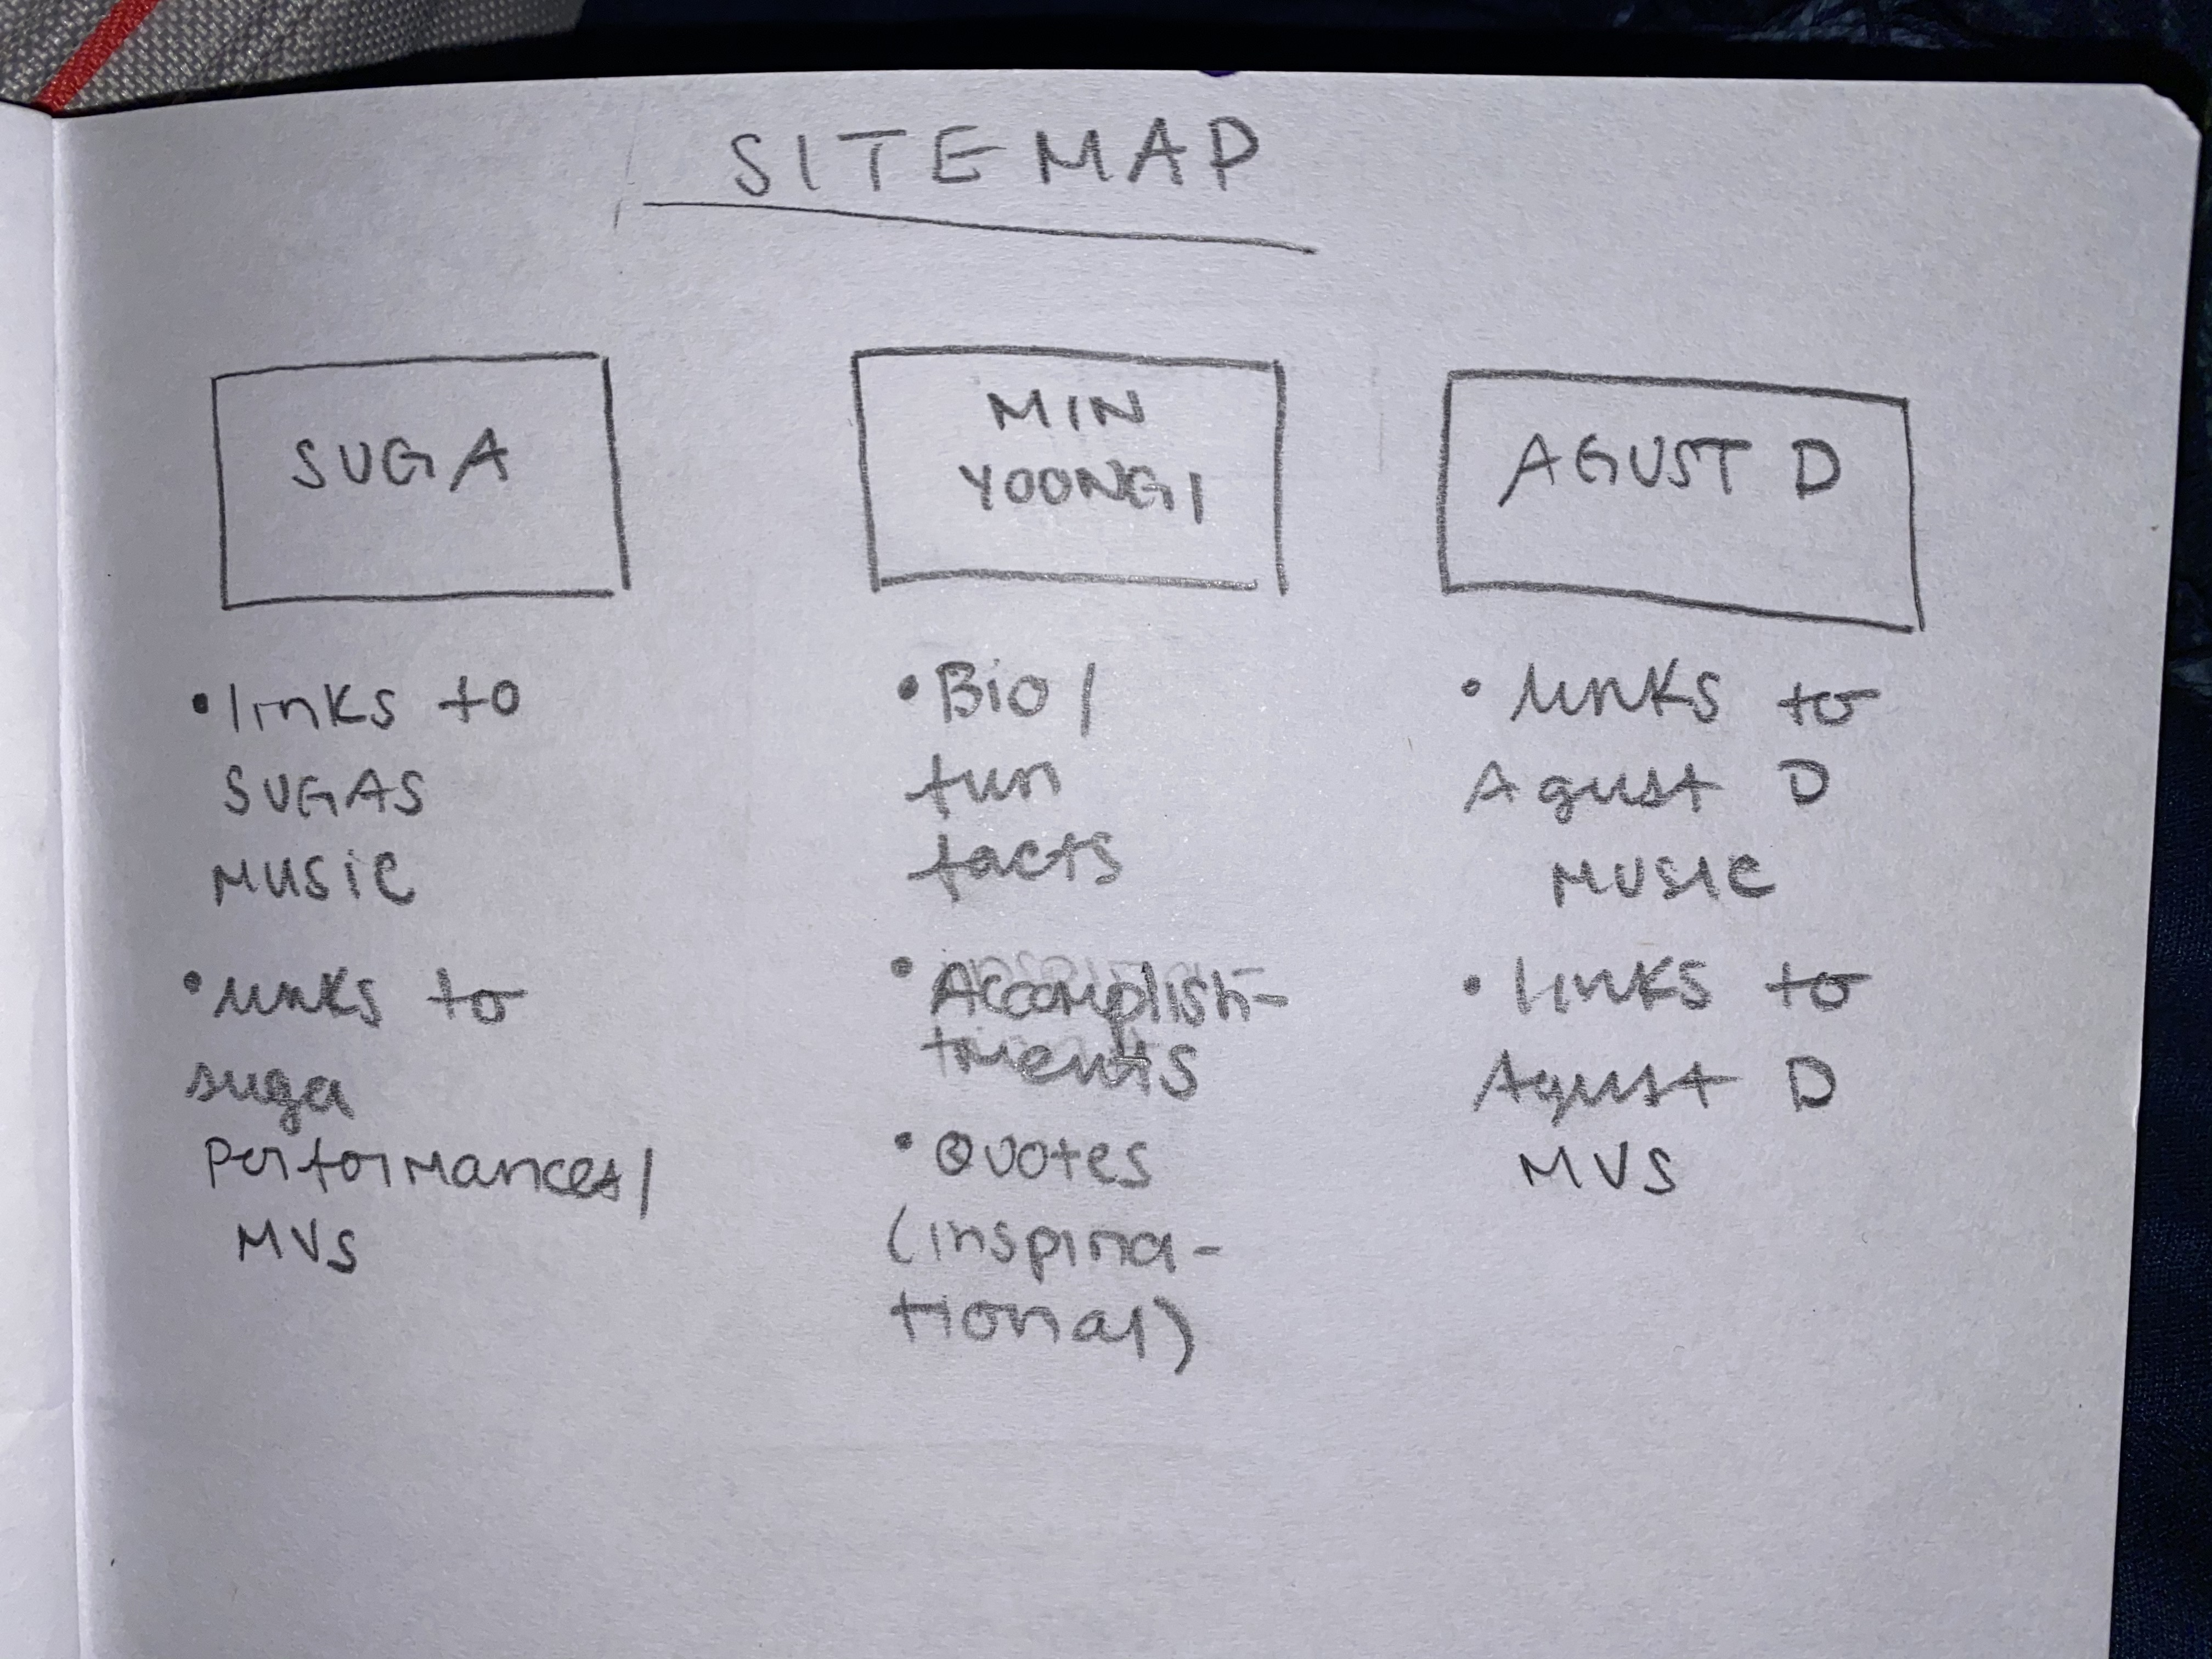 SITEMAP
SUGA
• links to
SUGAS
MUSIC
• links to
suga
Performances/
MVS
MIN
YOONGI
• Bio/
fun
facts
• Accomplish-
ments
• Quotes
(inspira-
tional)
AGUST D
• links to
Agust D
MUSIC
• links to
Agust D
MVS